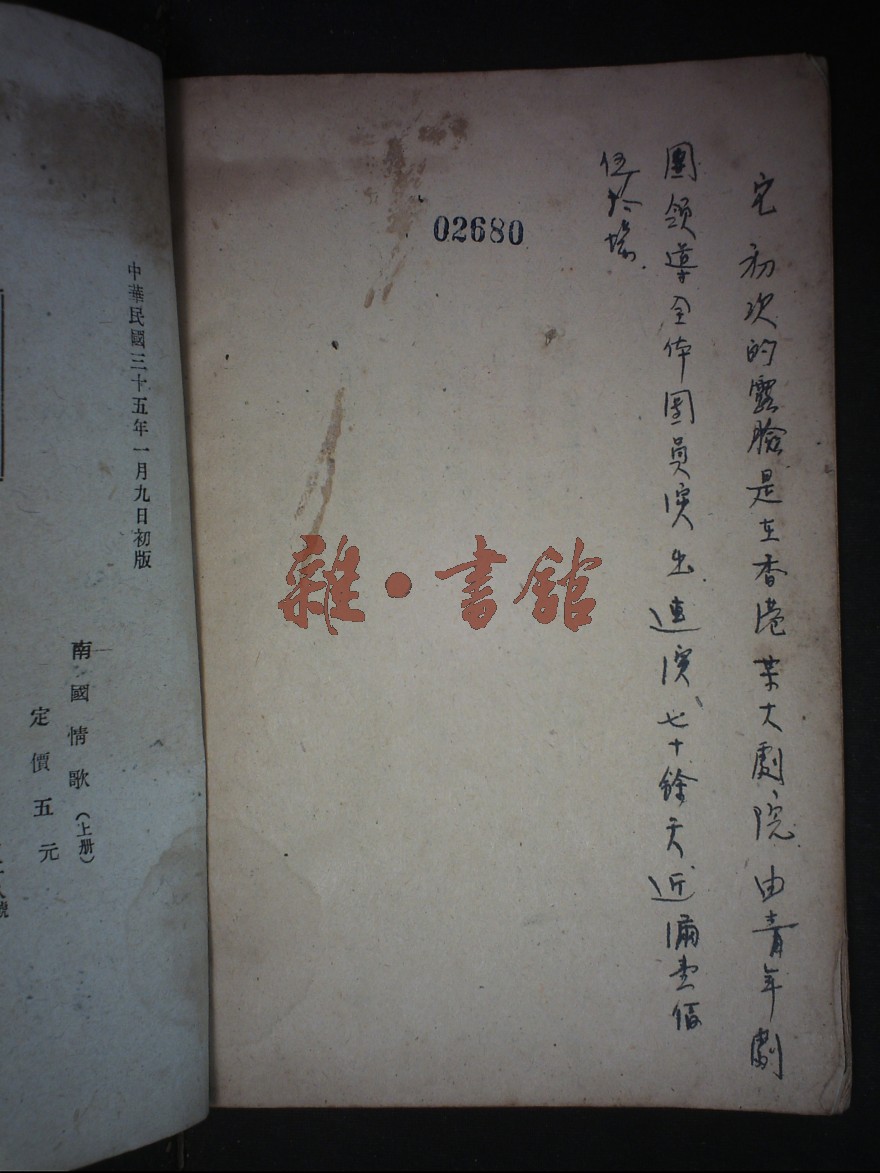 它初次的露臉是在香港某大劇院由青年劇
團領導全体團員演出連演七十餘天近滿壹佰
伍拾場
02680
雜·書舘
中華民國三十五年一月九日初版
南國情歌(上册)
定價五元
號